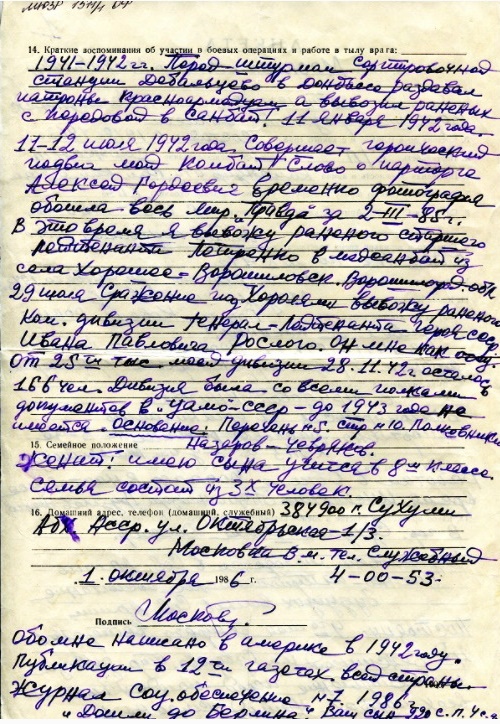 14. Краткие воспоминания об участии в боевых операциях и работе в тылу врага:
1941-1942 гг. Перед штурмом Сортировочной
станции Дебальцево в Донбассе раздавал
патроны Красноармейцам а вывозил раненых
с передовой в Санбат! 11 января 1942 года.
11-12 июля 1942 года. Совершает героический
подвиг мой Комбат Слово о парторга
Алексей Гордеевич Временно фотография
обошла весь мир. Правда за 2-III-85 г.
В это время я вывожу раненого старшего
лейтенанта в медсанбат из
села Хорошее-Ворошиловск. Ворошиловград. обл.
29 июля Сражение под вывожу раненого
Ком. дивизии Генерал-Лейтенанта Героя Сов.
Ивана Павловича Рослого. Он мне как
От 25 ти тыс. моей дивизии 28.11.42 г осталось
166 чел. Дивизия была со всеми полками
документов в "Цамо-ссср" - до 1943 года не
имеется. Основание: Перечень №5. стр №10. Полковники
Назаров-
15. Семейное положение
Женит! имею сына учится в 8м классе.
Семья состоит из 3х человек.
16. Домашний адрес, телефон (домашний, служебный) 384900 г. Сухуми
Абх Асср. ул. Октябрьская 1/3.
В. м. тел. Служебный
1. октября 1986 г. 4-00-53.
Подпись
Обо мне написано в америке в 1942 году.
Публикации в 12ти газетах всей страны.
Журнал Соц. обеспечение №7 1986
"Дошли до Берлина" Ваш сын